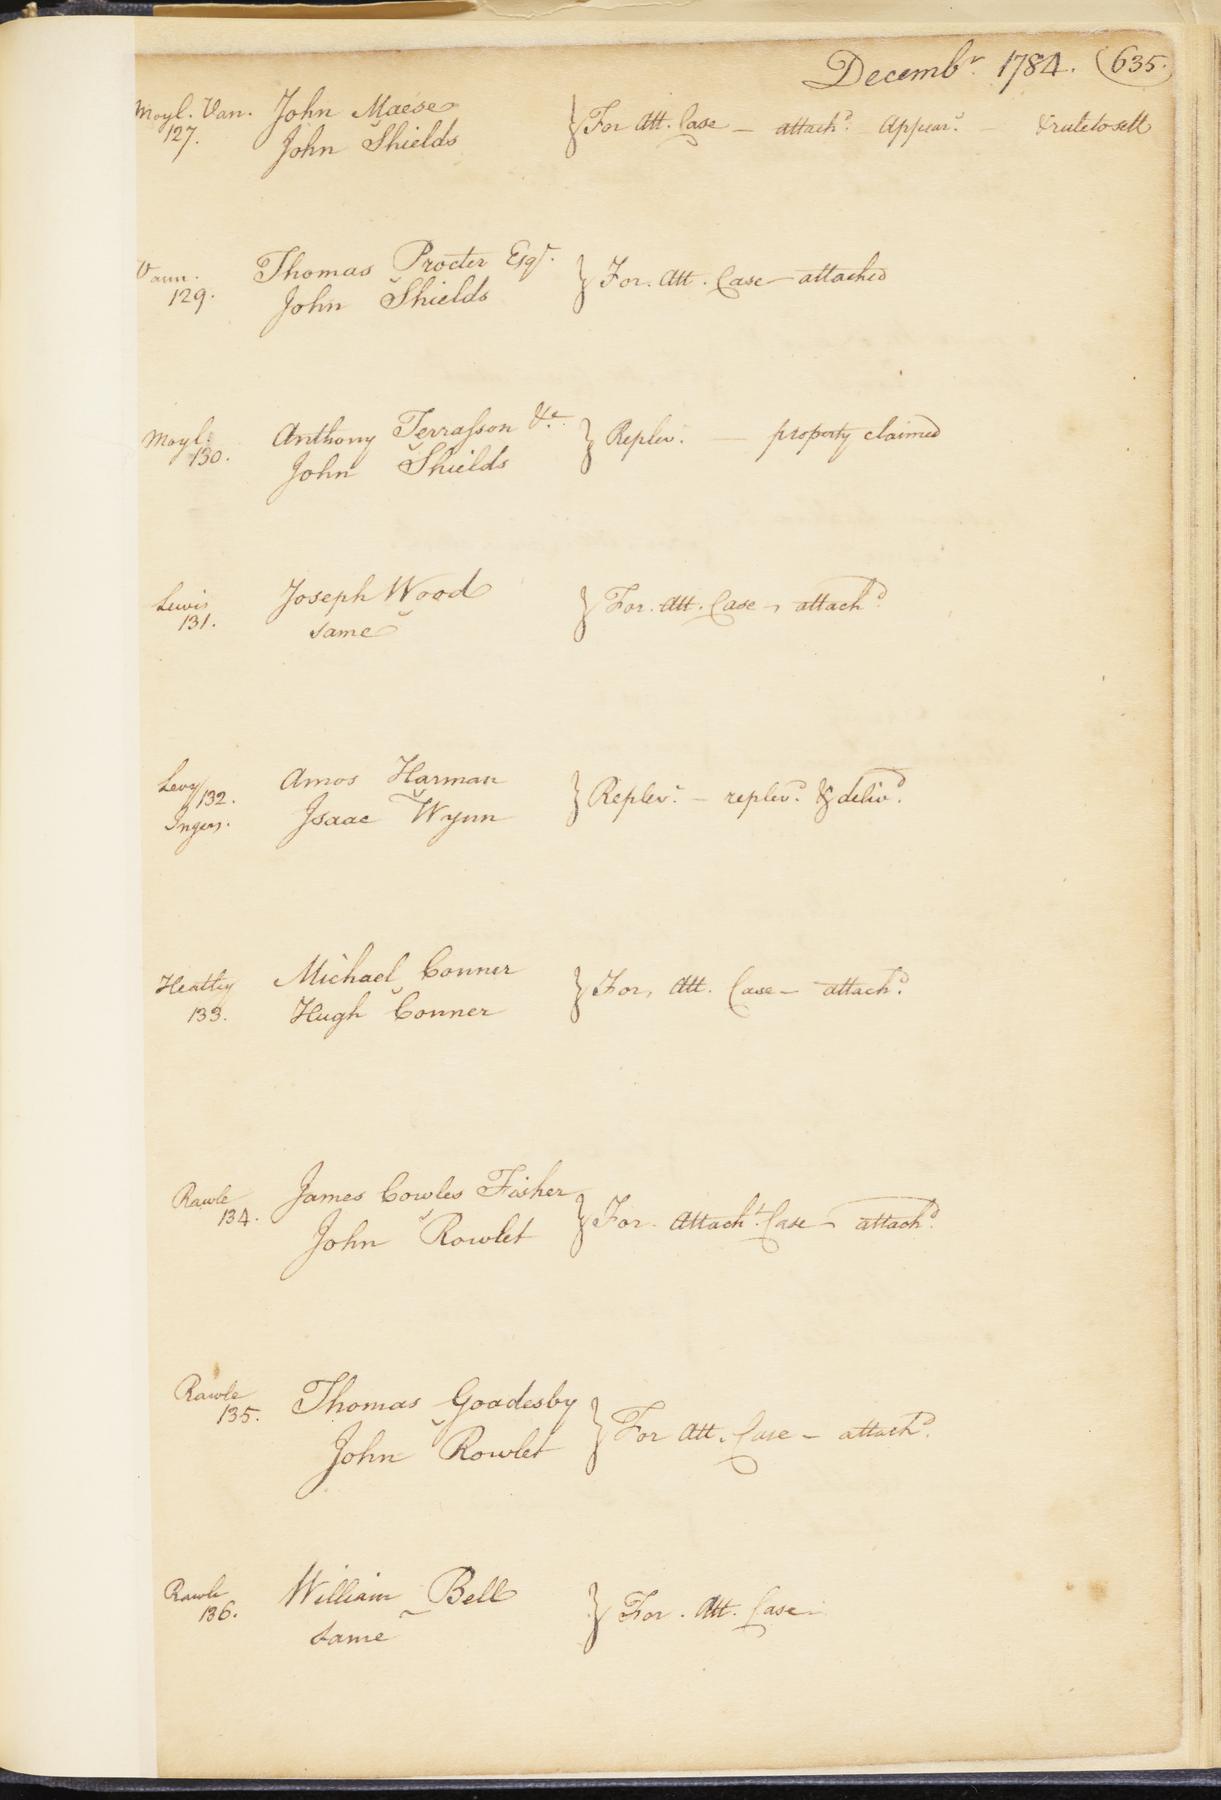 Decembr. 1784. (635.
Moyl. Van. John Maese
127. John Shields
} For Att. Case — attachd. Appeard. — & rule to sett
Vann. Thomas Procter Esqr.
129. John Shields
} For. Att. Case — attached
Moyl. Anthony Terrasson &c.
130. John Shields
} Replev. — property claimed
Lewis Joseph Wood
131. same
} For. Att. Case — attachd.
Levy Amos Harman
132.
Ingers. Isaac Wynn
} Replev. — replevd. & delivd.
Heatly Michael Conner
133. Hugh Conner
} For. Att. Case — attachd.
Rawle James Cowles Fisher
134. John Rowlet
} For. Attacht. Case — attachd.
Rawle Thomas Goadesby
135. John Rowlet
} For Att. Case — attachd.
Rawle William Bell
136. same
} For. Att. Case